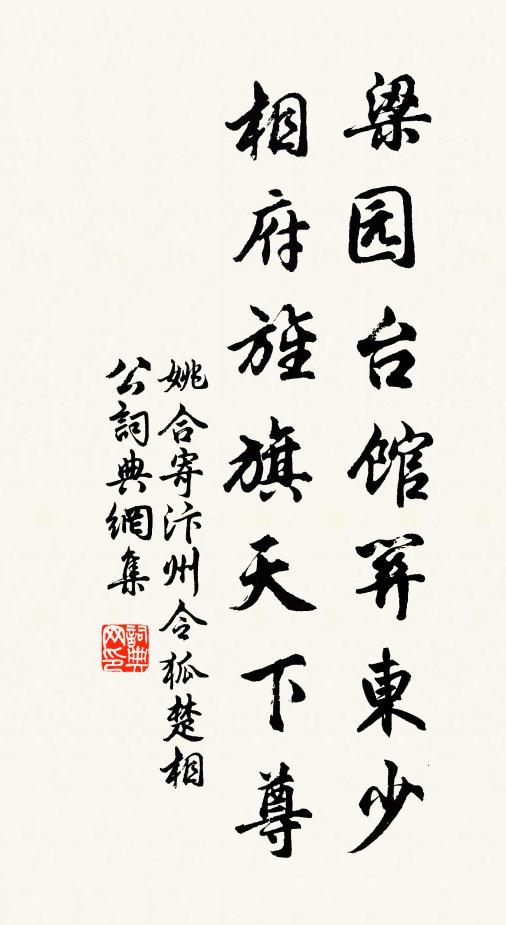 梁园台馆关東少
相府旌旗天下尊
姚合寄汴州令狐楚相
公詞典網集
詞典
网印